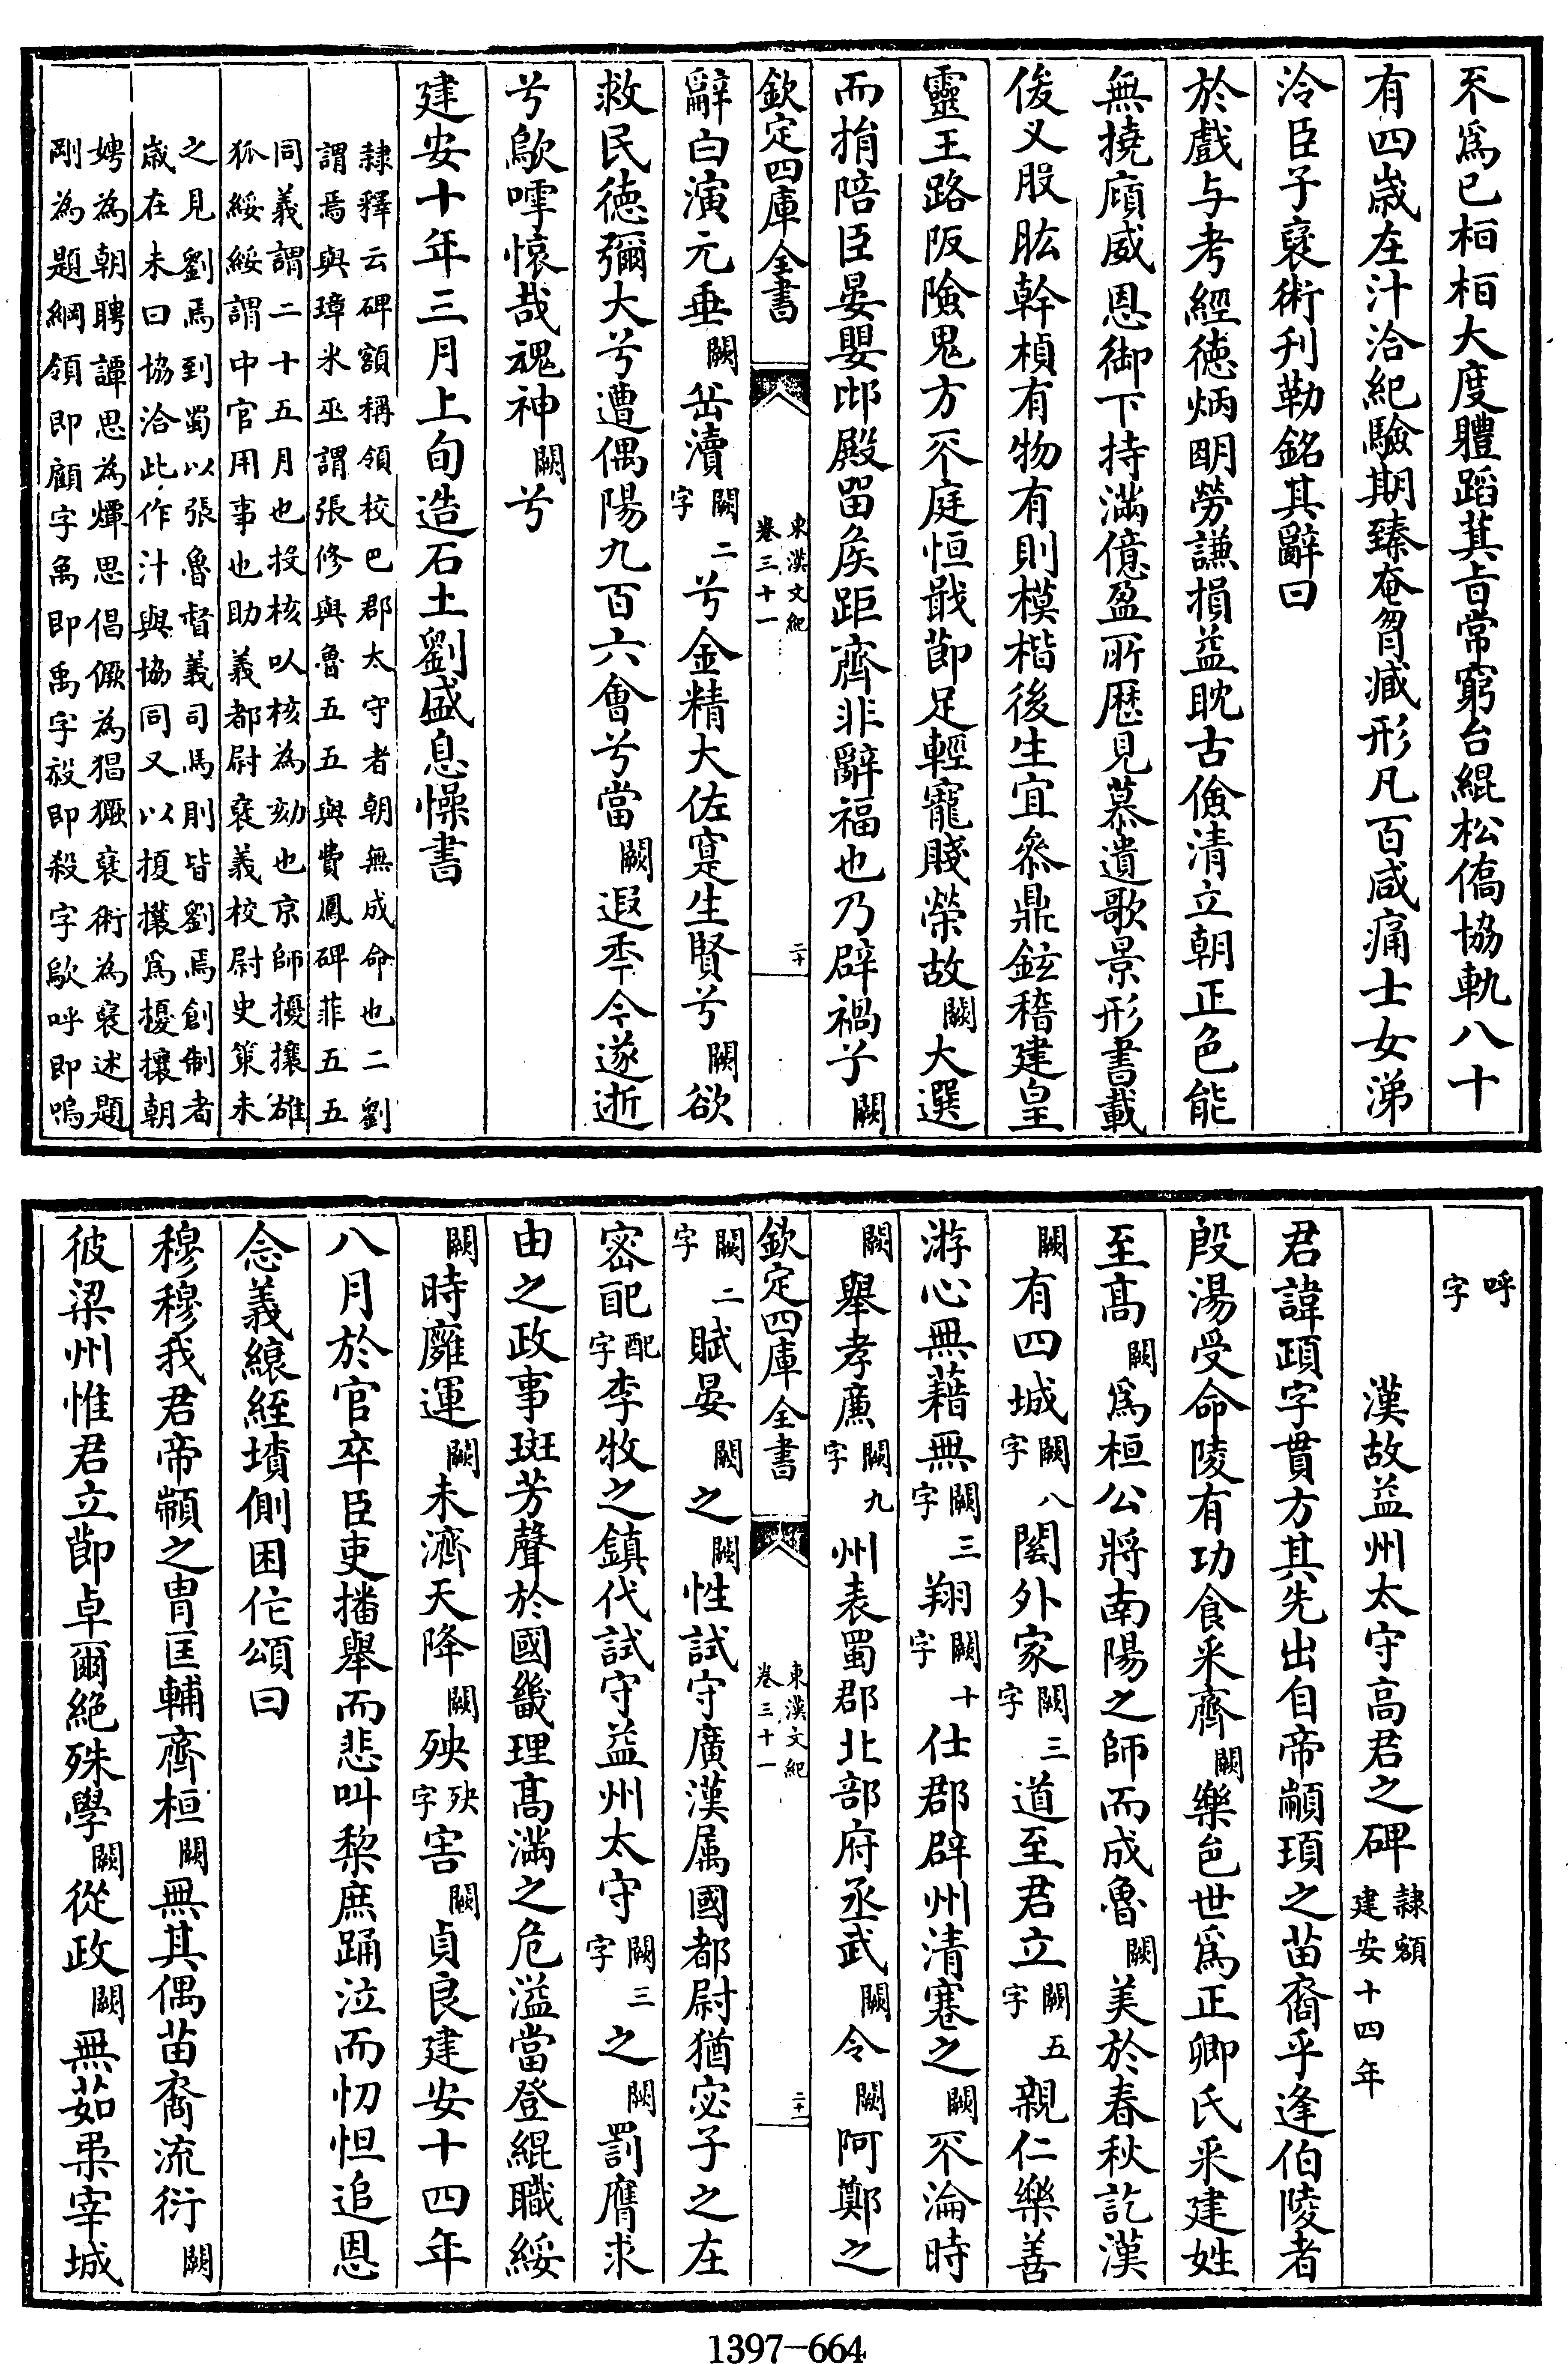 不爲已栢栢大度體蹈萁𣅀常窮台緄松僑協軌八十
有四歳在汁洽紀驗期臻奄曶臧形凡百咸痛士女涕
泠臣子襃術刋勒銘其辭曰
於戲与考經德炳明勞謙損益眈古儉清立朝正色能
無撓廎威恩御下持滿億盈所歷見慕遺歌景形書載
俊乂股肱幹楨有物有則模楷後生宜叅鼎鉉稽建皇
靈王路阪險鬼方不庭恒戢莭足輕寵賤榮故闕大選
而捐陪臣晏嬰邶殿畱矦距齊非辭福也乃辟禍子闕
欽定四庫全書
東漢文紀
卷三十一
二十
辭白演元垂闕岳瀆闕二字兮金精大佐寔生賢兮闕欲
救民德彌大兮遭偶陽九百六會兮當闕遐秊今遂逝
兮歍嘑懷哉魂神闕兮
建安十年三月上旬造石土劉盛息懆書
隷釋云碑額稱領校巴郡太守者朝無成命也二劉
謂焉與璋米巫謂張修與魯五五與費鳳碑菲五五
同義謂二十五月也投核以核為劾也京師擾攘雄
狐綏綏謂中官用事也助義都尉襃義校尉史策未
之見劉焉到蜀以張魯督義司馬則皆劉焉創制者
歳在未曰協洽此作汁與協同又以㯋攘爲擾攘朝
娉為朝聘譚思為燂思倡㒧為猖獗襃術為襃述題
剛為題綱領即顧字禼即禹字敍即殺字歍呼即嗚
呼
字
漢故益州太守高君之碑隷額建安十四年
君諱頤字貫方其先出自帝顓頊之苗裔乎逢伯陵者
殷湯受命陵有功食采齊闕樂邑世爲正卿氏采建姓
至高闕爲桓公將南陽之師而成魯闕美於春秋訖漢
闕有四城闕八字閡外家闕三字道至君立闕五字親仁樂善
游心無藉無闕三字翔闕十字仕郡辟州清蹇之闕不淪時
闕舉孝廉闕九字州表蜀郡北部府丞武闕令闕阿鄭之
欽定四庫全書
東漢文紀
卷三十一
二十一
闕二字賦晏闕之闕性試守廣漢属國都尉猶宓子之在
宻𨠍配字李牧之鎮代試守益州太守闕三字之闕罰膺求
由之政事斑芳聲於國畿理髙滿之危溢當登緄職綏
闕時廱運闕未濟天降闕殃殃字害闕貞良建安十四年
八月於官卒臣吏播舉而悲叫黎庶踊泣而忉怛追恩
念義縗絰墳側困佗頌曰
穆穆我君帝顓之胄匡輔齊桓闕無其偶苗裔流衍闕
彼梁州惟君立莭卓爾絶殊學闕從政闕無茹柔宰城
1397-664